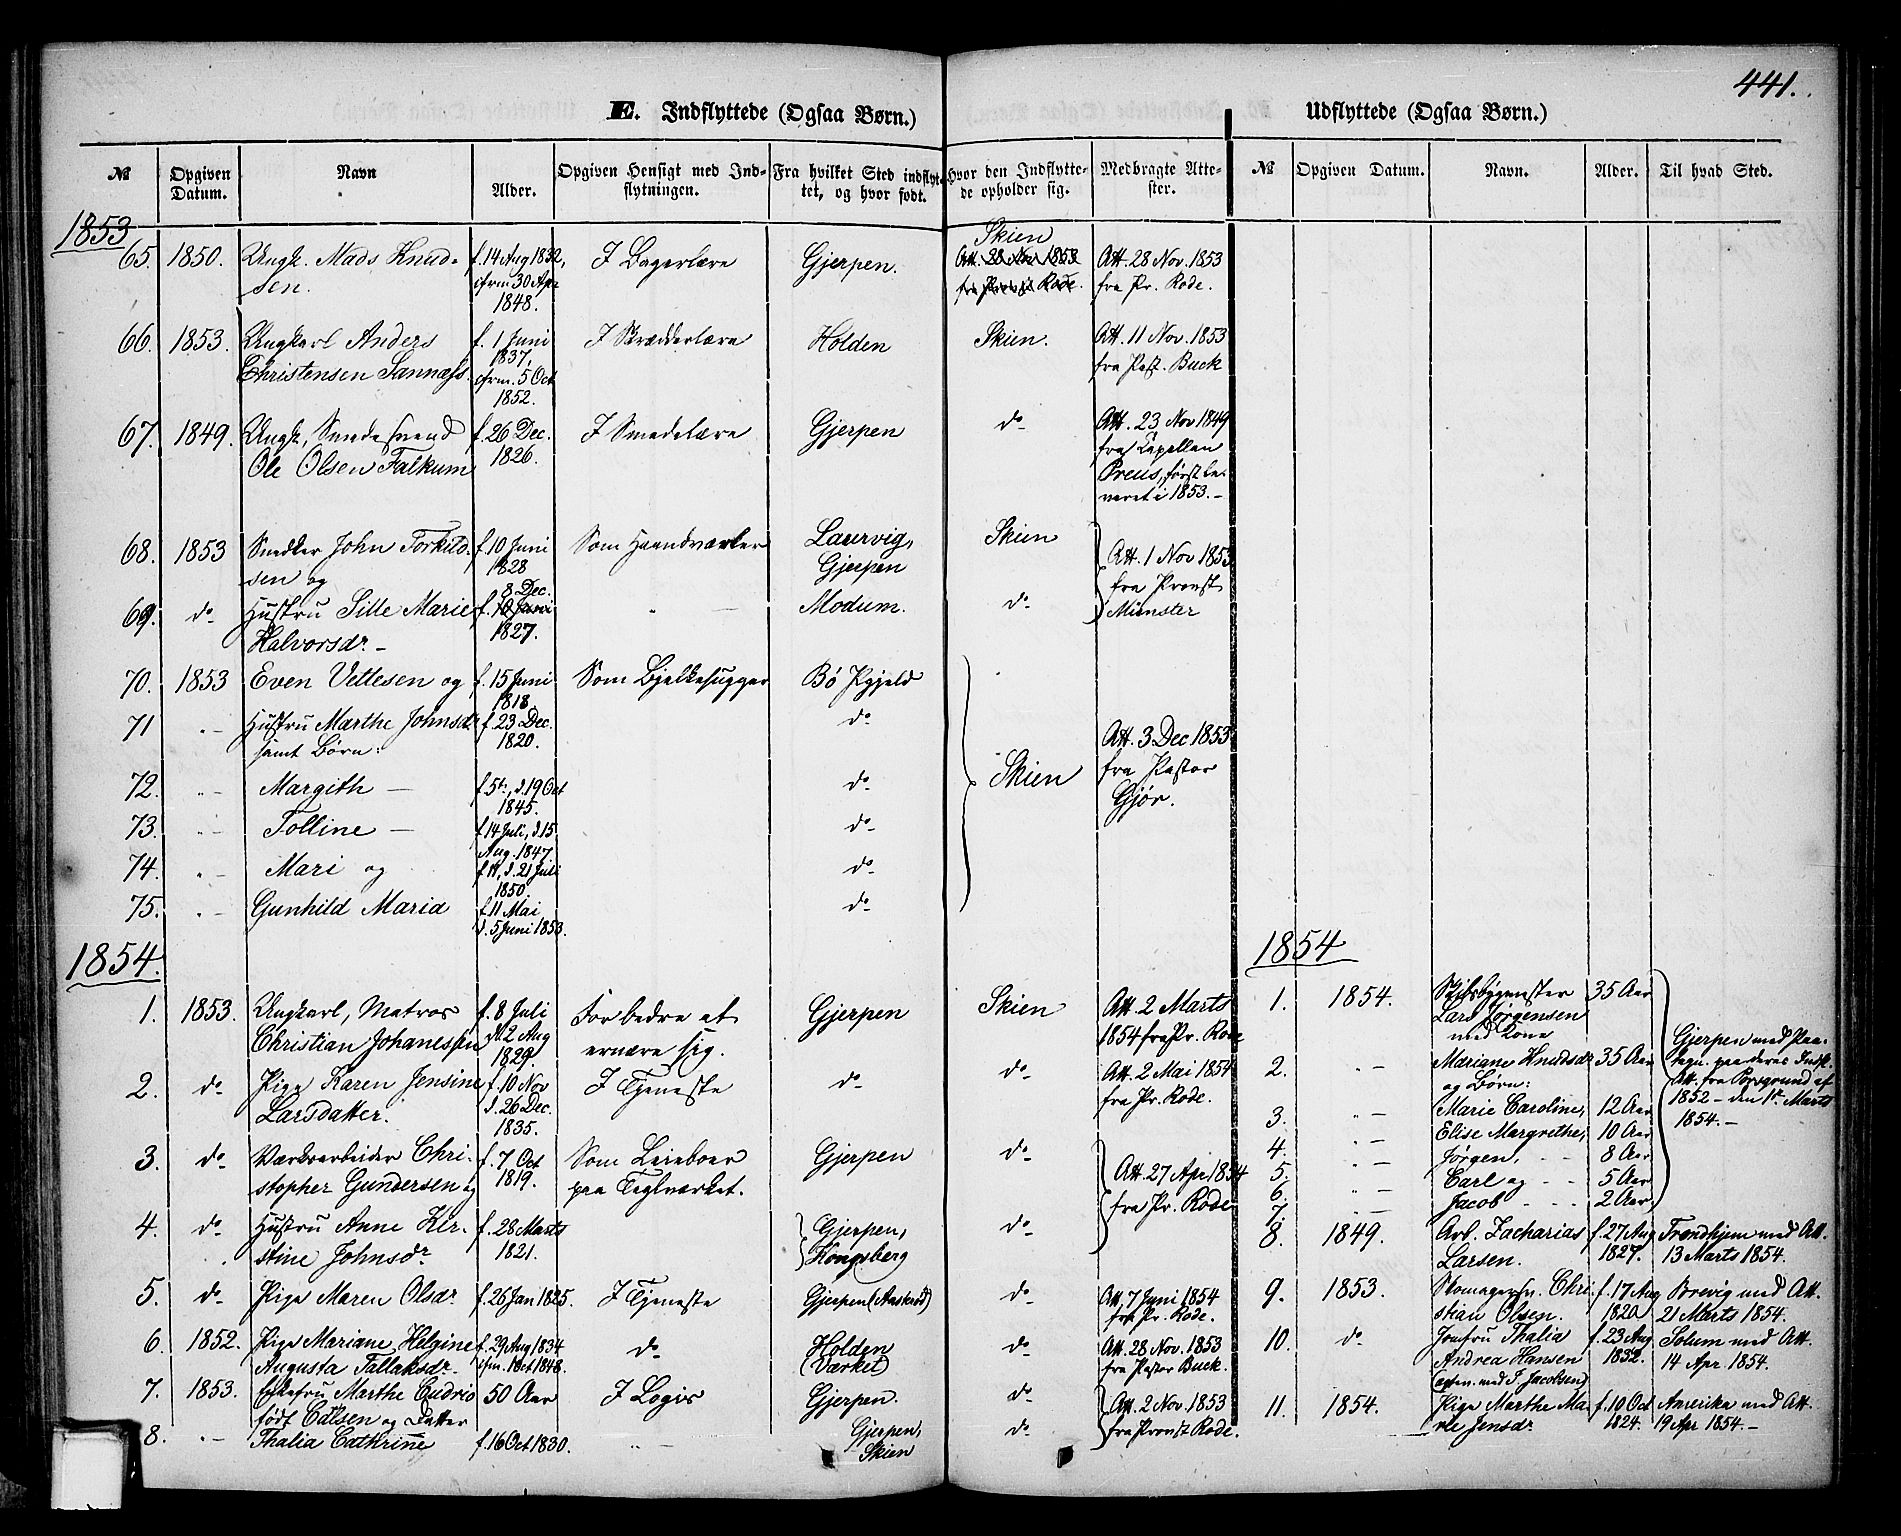 441.
E. Indflyttede (Ogsaa Børn.)
Udflyttede (Ogsaa Børn.)
№ Opgiven Datum. Navn Alder. Opgiven Hensigt med Indflytningen. Fra hvilket Sted indflyttet, og hvor født. Hvor den Indflyttede opholder sig. Medbragte Attester.
№ Opgiven Datum. Navn. Alder. Til hvad Sted.
1853
65. 1850. Ungk. Mads Knud- f. 14 Aug 1832, I Bagerlære Gjerpen. Skien Att. 28 Nov. 1853
sen. cfrm 30 Apr Att. 28 Nov 1853 fra Pr. Rode.
1848. fra Provst Rode.
66. 1853. Ungkarl Anders f. 1 Juni I Skrædderlære Holden Skien. Att. 11 Nov. 1853
Christensen Sannæss. 1837, fra Past. Buck
cfrm. 5 Oct
1852.
67. 1849. Ungk, Smedesvend f. 26 Dec. I Smedelære Gjerpen do Att. 23 Nov 1849
Ole Olsen Falkum 1826. fra Capellan
Preus, først le-
veret i 1853.-
68. 1853 Snedker John Torkild- f. 10 Juni Som Haandværker Laurvig, Skien Att. 1 Nov 1853
sen og 1828 Gjerpen fra Provst
69. do Hustru Sille Marie 8 Dec. f. 10 Juni " Modum. do Münster
Halvorsdr - 1827.
70. 1853 Even Vettesen og f. 15 Juni Som Bjelkehugger Bö Pgjeld
1818
71 " - Hustru Marthe Johnsdr f. 23 Dec. do Att. 3 Dec 1853
samt Børn: 1820. fra Pastor
72. " - Margith - f. 5te, d. 19 Oct do Skien Gjør.
1845.
73. " - Tolline - f 14 Juli, d. 15 do
Aug. 1847
74. " - Mari og f. 11, d. 21 Juli do
1850.
75. " - Gunhild Maria f. 11 Mai do
d. 5 Juni 1853.
1854.
1. 1853. Ungkarl, Matros f. 8 Juli For bedre at Gjerpen Skien Att. 2 Marts
Christian Johanessen d. 2 Aug ernære sig. 1854 fra Pr. Rode
1829
2. do Pige Karen Jensine f. 10 Nov I Tjeneste do do Att. 2 Mai 1854
Larsdatter. d. 26 Dec. fra Pr. Rode.
1835.
3. do Værksarbeider Chri- f. 7 Oct Som Leieboer Gjerpen do Att. 27 Apr. 1854
stopher Gundersen og 1819. paa Teglværket. fra Pr. Rode
4. do Hustru Anne Kir- f. 28 Marts Gjerpen, do
stine Johnsdr 1821. Kongsberg
5. do Pige Maren Olsdr. f. 26 Jan 1825. I Tjeneste Gjerpen do Att. 7 Juni 1854
fra Pr. Rode.
6. 1852. Pige Mariane Helgine f. 29 Aug 1834 do Holden do Att. 28 Nov. 1853
Augusta Tallaksdr. cfrm. 1 Oct 1848. (Værket) fra Pastor Buck.
7. 1853. Enkefru Marthe Cudrio 50 Aar I Logis Gjerpen. do Att. 2 Nov. 1853
født Carlsen og Datter fra Provst Rode.
8. " - Thalia Cathrine f. 16 Oct 1830. " - Gjerpen, do
Skien
1854
1. 1854. Skibsbygmester 35 Aar
Lars Jørgensen
med Kone
2. " - Mariane Knudsdr 35 Aar Gjerpen med Paa-
og Børn: tegn. paa deres Indfl.
3. " - Marie Caroline, 12 Aar Att. fra Porsgrund af
4. " - Elise Margrethe, 10 Aar 1852 - den 1te Marts
5. " - Jørgen, - - 8 Aar 1854.-
6. " - Carl og - - 5 Aar
7. " - Jacob - - - 2 Aar
8. 1849. Arb. Zacharias f. 27 Aug Trondhjem med Att.
Larsen. 1827. 13 Marts 1854.
9. 1853. Skomagersv. Chri- f. 17 Aug Brevig med Att.
stian Olsen. 1820. 21 Marts 1854.
10. do Jomfru Thalia f. 23 Aug Solum med Att.
Andrea Hansen 1832. 14 Apr. 1854.
(egten. med T. Jacobsen)
11. 1854. Pige Marthe Ma- f. 10 Oct Amerika med Att.
rie Jensdr. 1824. 19 Apr 1854.-